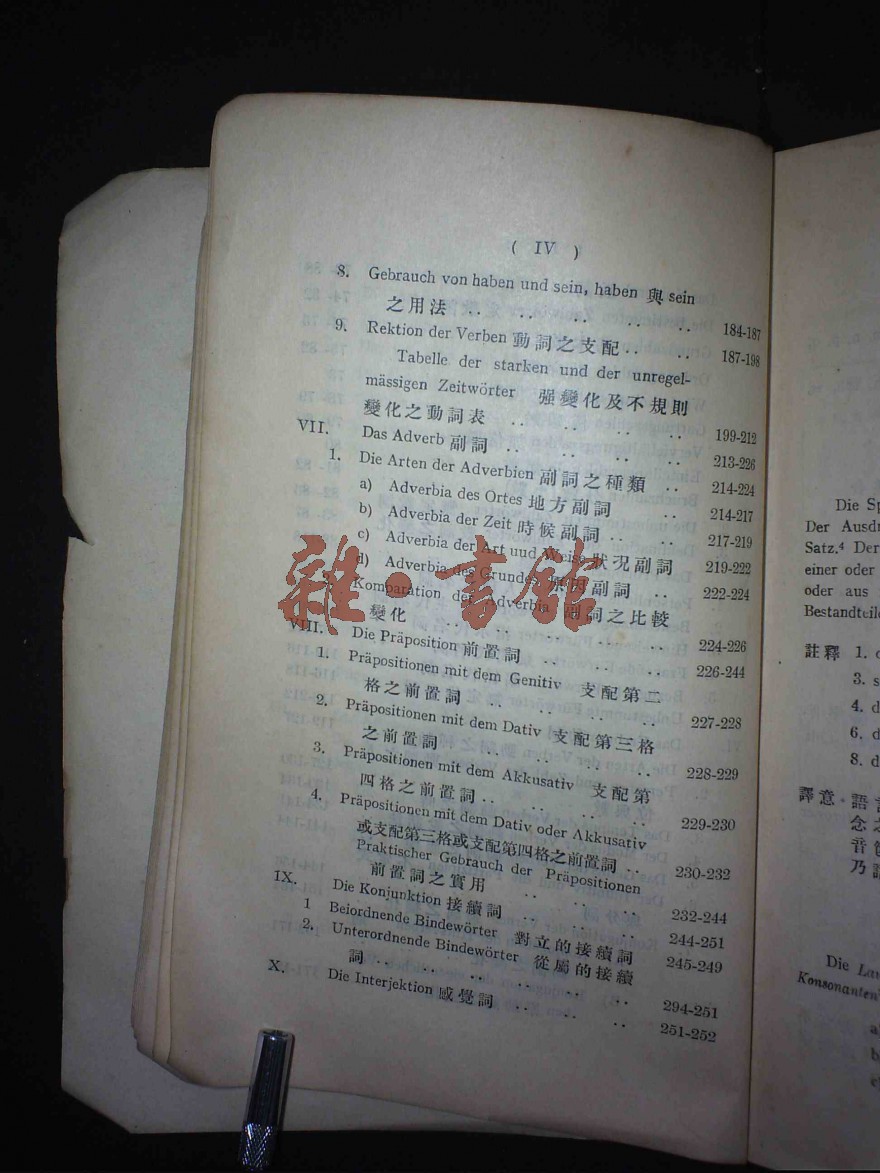 ( IV )
8. Gebrauch von haben und sein, haben 與 sein
之用法 .. .. .. .. .. 184-187
9. Rektion der Verben 動詞之支配 .. .. 187-198
Tabelle der starken und der unregel-
mässigen Zeitwörter 强變化及不規則
變化之動詞表 .. .. .. .. 199-212
VII. Das Adverb 副詞 .. .. .. .. 213-226
1. Die Arten der Adverbien 副詞之種類 .. 214-224
a) Adverbia des Ortes 地方副詞 .. 214-217
b) Adverbia der Zeit 時候副詞 .. .. 217-219
c) Adverbia der Art uud Weise 狀况副詞 219-222
d) Adverbia des Grundes 原因副詞 .. 222-224
2. Komparation der Adverbia 副詞之比較
變化 .. .. .. .. 224-226
VIII. Die Präposition 前置詞 .. .. .. 226-244
1. Präpositionen mit dem Genitiv 支配第二
格之前置詞 .. .. .. .. 227-228
2. Präpositionen mit dem Dativ 支配第三格
之前置詞 .. .. .. .. 228-229
3. Präpositionen mit dem Akkusativ 支配第
四格之前置詞 .. .. .. .. 229-230
4. Präpositionen mit dem Dativ oder Akkusativ
或支配第三格或支配第四格之前置詞 .. 230-232
Praktischer Gebrauch der Präpositionen
前置詞之實用 .. .. .. 232-244
IX. Die Konjunktion 接續詞 .. .. .. 244-251
1 Beiordnende Bindewörter 對立的接續詞 245-249
2. Unterordnende Bindewörter 從屬的接續
詞 .. .. .. .. 294-251
X. Die Interjektion 感覺詞 .. .. .. 251-252
雜·書館
Die Sp
Der Ausdr
Satz.⁴ Der
einer oder
oder aus
Bestandteile
註釋 1. d
3. s
4. d
6. d
8. d
譯意·語言
念之
音
乃
Die Lau
Konsonanten
a
b
c